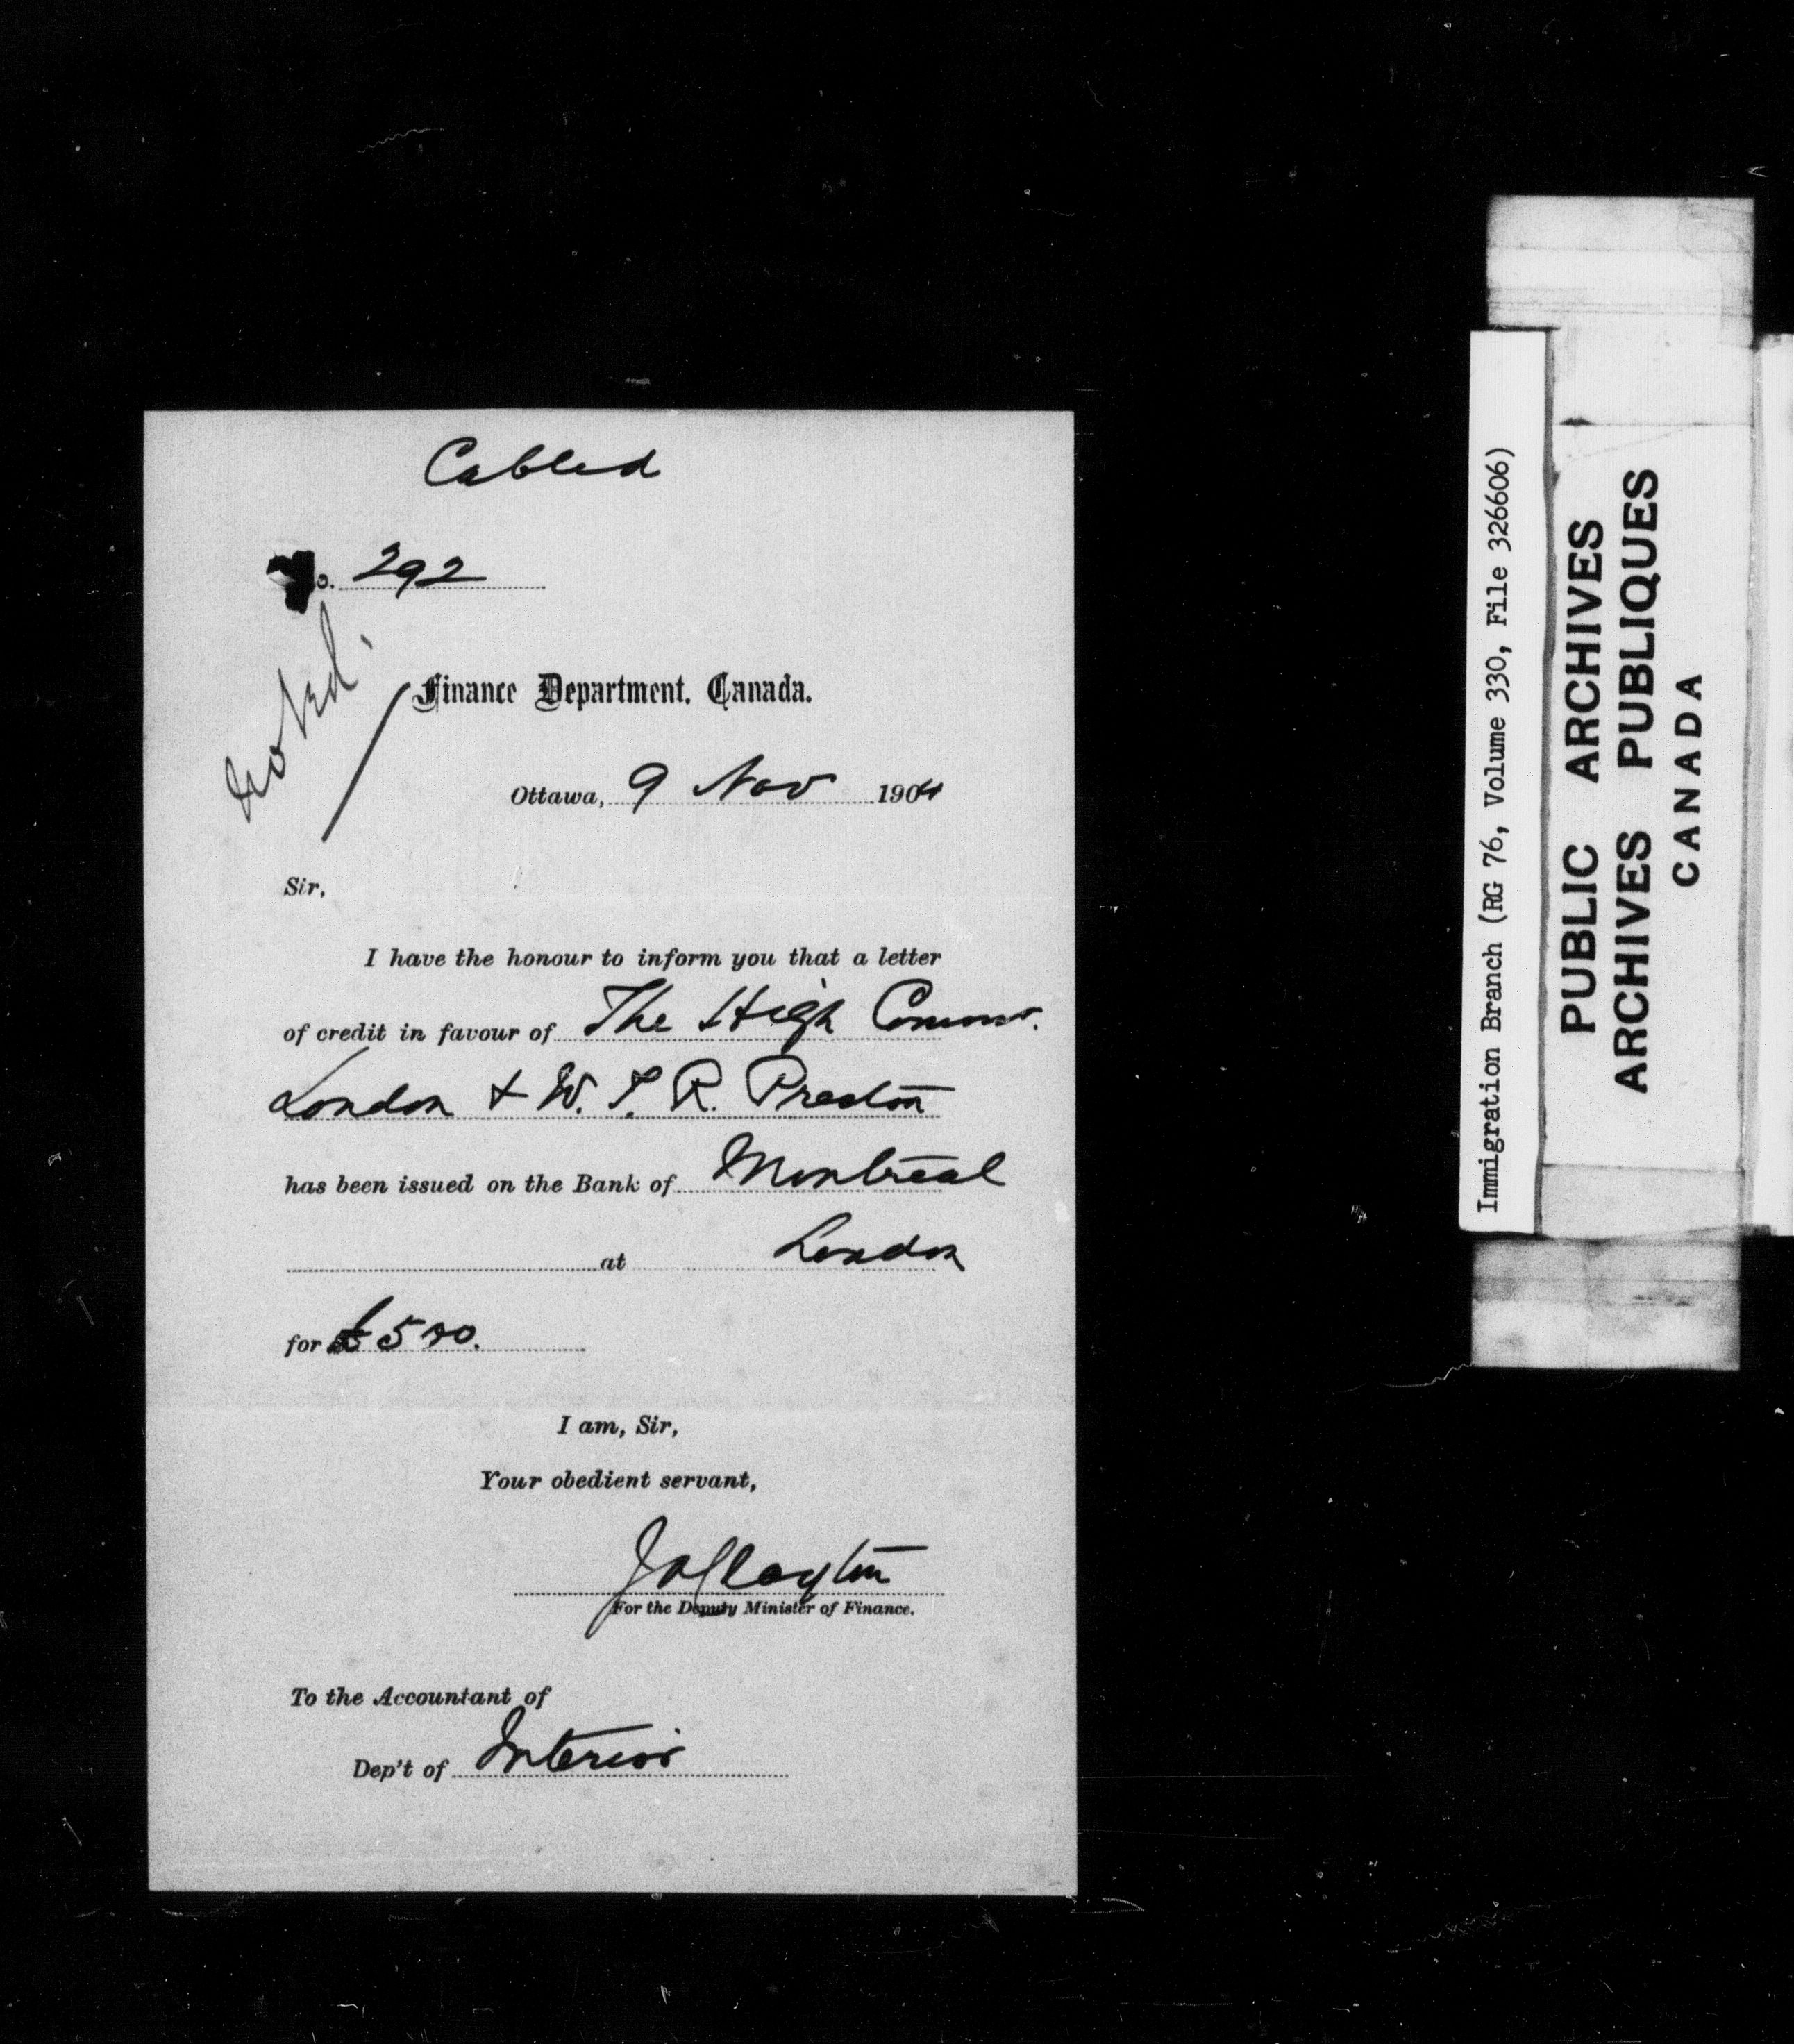 Cabled
No. 292
Noted.
Finance Department, Canada.
Ottawa, 9 Nov 1904
Sir,
I have the honour to inform you that a letter
of credit in favour of The High Commr.
London & W. T. R. Preston
has been issued on the Bank of Montreal
at London
for £500.
I am, Sir,
Your obedient servant,
For the Deputy Minister of Finance.
To the Accountant of
Dep't of Interior
Immigration Branch (RG 76, Volume 330, File 326606)
PUBLIC ARCHIVES
ARCHIVES PUBLIQUES
CANADA